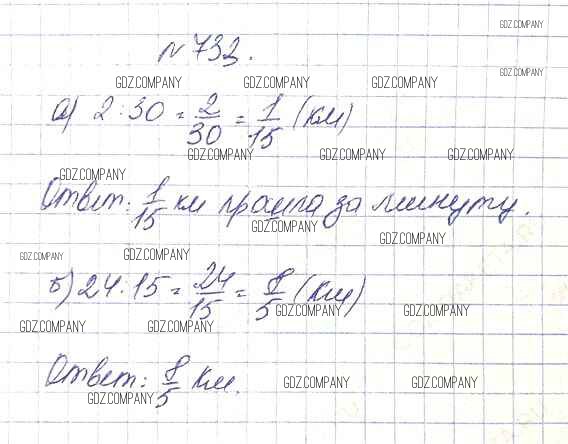 GDZ.COMPANY
№ 733.
GDZ.COMPANY
GDZ.COMPANY GDZ.COMPANY GDZ.COMPANY
а) 2 : 30 = 2/30 = 1/15 (км)
GDZ.COMPANY GDZ.COMPANY GDZ.COMPANY
GDZ.COMPANY
Ответ: 1/15 км прошла за минуту.
GDZ.COMPANY
GDZ.COMPANY
GDZ.COMPANY GDZ.COMPANY
б) 24 : 15 = 24/15 = 8/5 (км)
GDZ.COMPANY GDZ.COMPANY
GDZ.COMPANY GDZ.COMPANY
Ответ: 8/5 км.
GDZ.COMPANY GDZ.COMPANY
GDZ.COMPANY